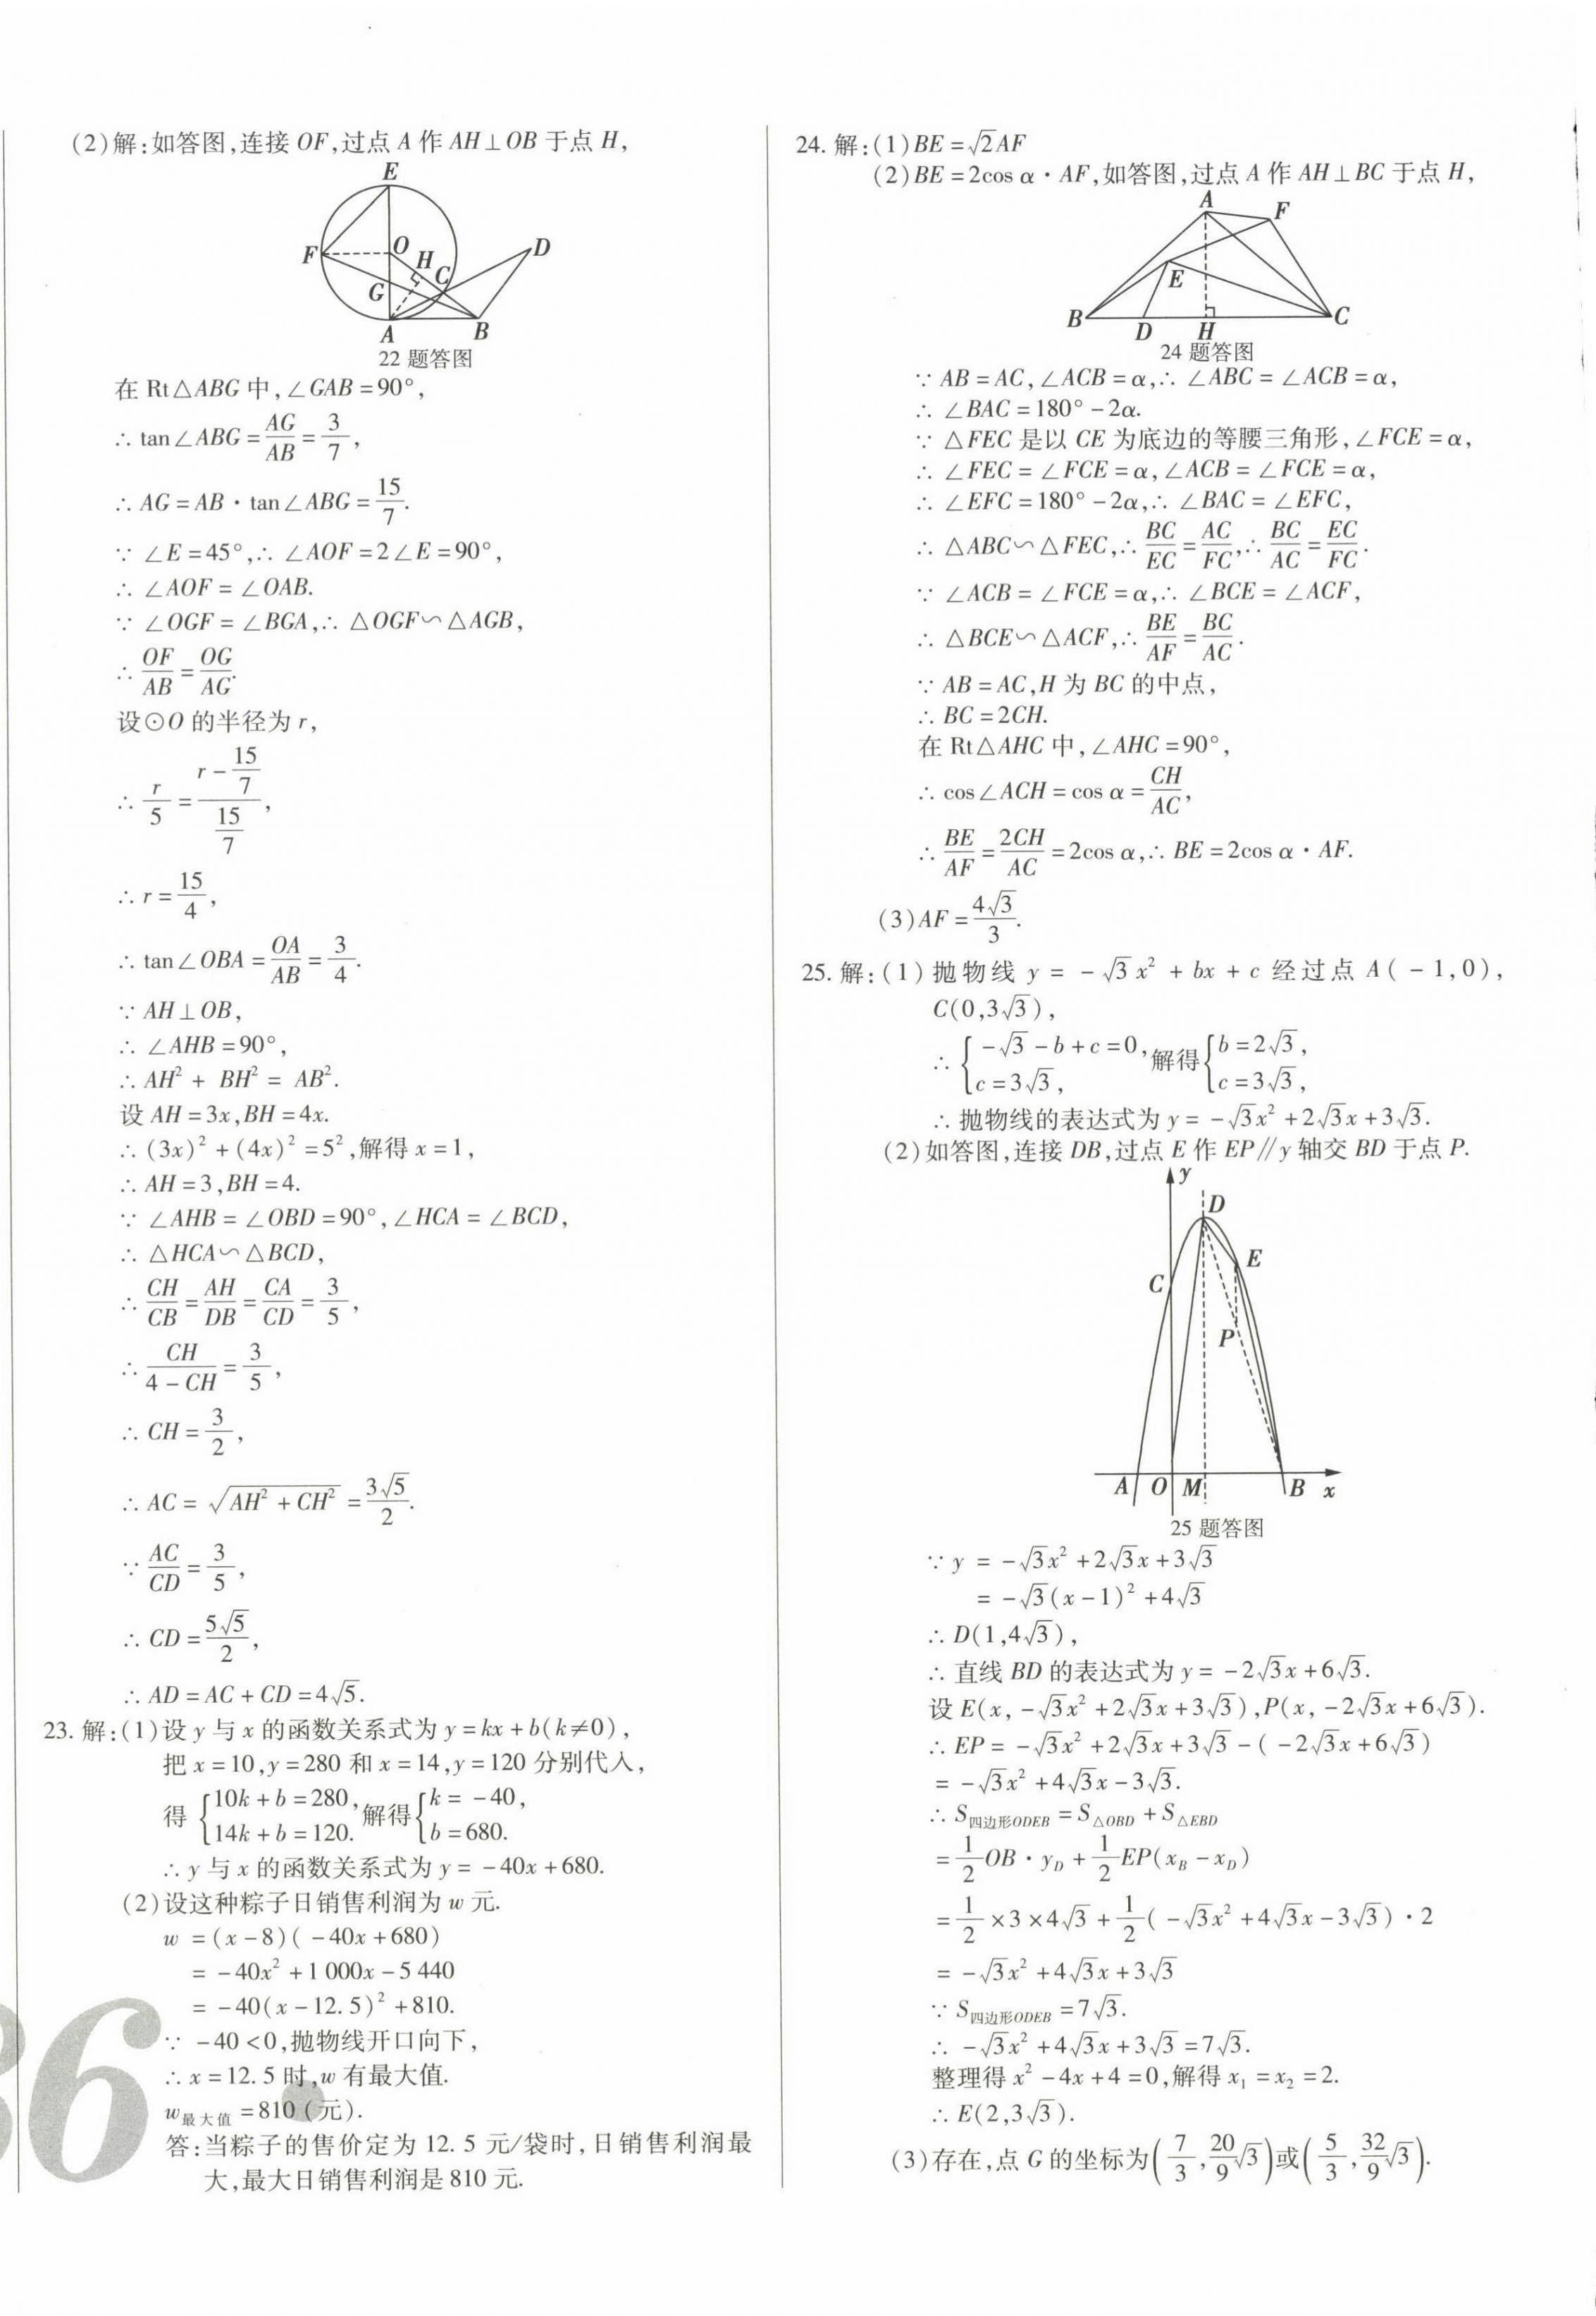 (2)解:如答图,连接 OF,过点 A 作 AH⊥OB 于点 H,
E
F
O
H
C
D
G
A
B
22 题答图
在 Rt△ABG 中,∠GAB=90°,
∴ tan∠ABG=AG/AB=3/7,
∴ AG=AB·tan∠ABG=15/7.
∵ ∠E=45°,∴ ∠AOF=2∠E=90°,
∴ ∠AOF=∠OAB.
∵ ∠OGF=∠BGA,∴ △OGF∽△AGB,
∴ OF/AB=OG/AG.
设⊙O 的半径为 r,
∴ r/5=(r-15/7)/(15/7),
∴ r=15/4,
∴ tan∠OBA=OA/AB=3/4.
∵ AH⊥OB,
∴ ∠AHB=90°,
∴ AH²+BH²=AB².
设 AH=3x,BH=4x.
∴ (3x)²+(4x)²=5²,解得 x=1,
∴ AH=3,BH=4.
∵ ∠AHB=∠OBD=90°,∠HCA=∠BCD,
∴ △HCA∽△BCD,
∴ CH/CB=AH/DB=CA/CD=3/5,
∴ CH/(4-CH)=3/5,
∴ CH=3/2,
∴ AC=√(AH²+CH²)=3√5/2.
∵ AC/CD=3/5,
∴ CD=5√5/2,
∴ AD=AC+CD=4√5.
23. 解:(1)设 y 与 x 的函数关系式为 y=kx+b(k≠0),
把 x=10,y=280 和 x=14,y=120 分别代入,
得 {10k+b=280, 14k+b=120. 解得{k=-40, b=680.
∴ y 与 x 的函数关系式为 y=-40x+680.
(2)设这种粽子日销售利润为 w 元.
w =(x-8)(-40x+680)
=-40x²+1 000x-5 440
=-40(x-12.5)²+810.
∵ -40<0,抛物线开口向下,
∴ x=12.5 时,w 有最大值.
w最大值=810(元).
答:当粽子的售价定为 12.5 元/袋时,日销售利润最
大,最大日销售利润是 810 元.
36
24. 解:(1)BE=√2AF
(2)BE=2cos α·AF,如答图,过点 A 作 AH⊥BC 于点 H,
A
F
E
B
D
H
C
24 题答图
∵ AB=AC,∠ACB=α,∴ ∠ABC=∠ACB=α,
∴ ∠BAC=180°-2α.
∵ △FEC 是以 CE 为底边的等腰三角形,∠FCE=α,
∴ ∠FEC=∠FCE=α,∠ACB=∠FCE=α,
∴ ∠EFC=180°-2α,∴ ∠BAC=∠EFC,
∴ △ABC∽△FEC,∴ BC/EC=AC/FC,∴ BC/AC=EC/FC.
∵ ∠ACB=∠FCE=α,∴ ∠BCE=∠ACF,
∴ △BCE∽△ACF,∴ BE/AF=BC/AC.
∵ AB=AC,H 为 BC 的中点,
∴ BC=2CH.
在 Rt△AHC 中,∠AHC=90°,
∴ cos∠ACH=cos α=CH/AC,
∴ BE/AF=2CH/AC=2cos α,∴ BE=2cos α·AF.
(3)AF=4√3/3.
25. 解:(1)抛物线 y=-√3x²+bx+c 经过点 A(-1,0),
C(0,3√3),
∴ {-√3-b+c=0, c=3√3, 解得{b=2√3, c=3√3,
∴ 抛物线的表达式为 y=-√3x²+2√3x+3√3.
(2)如答图,连接 DB,过点 E 作 EP∥y 轴交 BD 于点 P.
y
D
E
C
P
A
O
M
B
x
25 题答图
∵ y =-√3x²+2√3x+3√3
=-√3(x-1)²+4√3
∴ D(1,4√3),
∴ 直线 BD 的表达式为 y=-2√3x+6√3.
设 E(x,-√3x²+2√3x+3√3),P(x,-2√3x+6√3).
∴ EP=-√3x²+2√3x+3√3-(-2√3x+6√3)
=-√3x²+4√3x-3√3.
∴ S四边形ODEB=S△OBD+S△EBD
=1/2OB·yD+1/2EP(xB-xD)
=1/2×3×4√3+1/2(-√3x²+4√3x-3√3)·2
=-√3x²+4√3x+3√3
∵ S四边形ODEB=7√3.
∴ -√3x²+4√3x+3√3=7√3.
整理得 x²-4x+4=0,解得 x₁=x₂=2.
∴ E(2,3√3).
(3)存在,点 G 的坐标为(7/3,20/9√3)或(5/3,32/9√3).